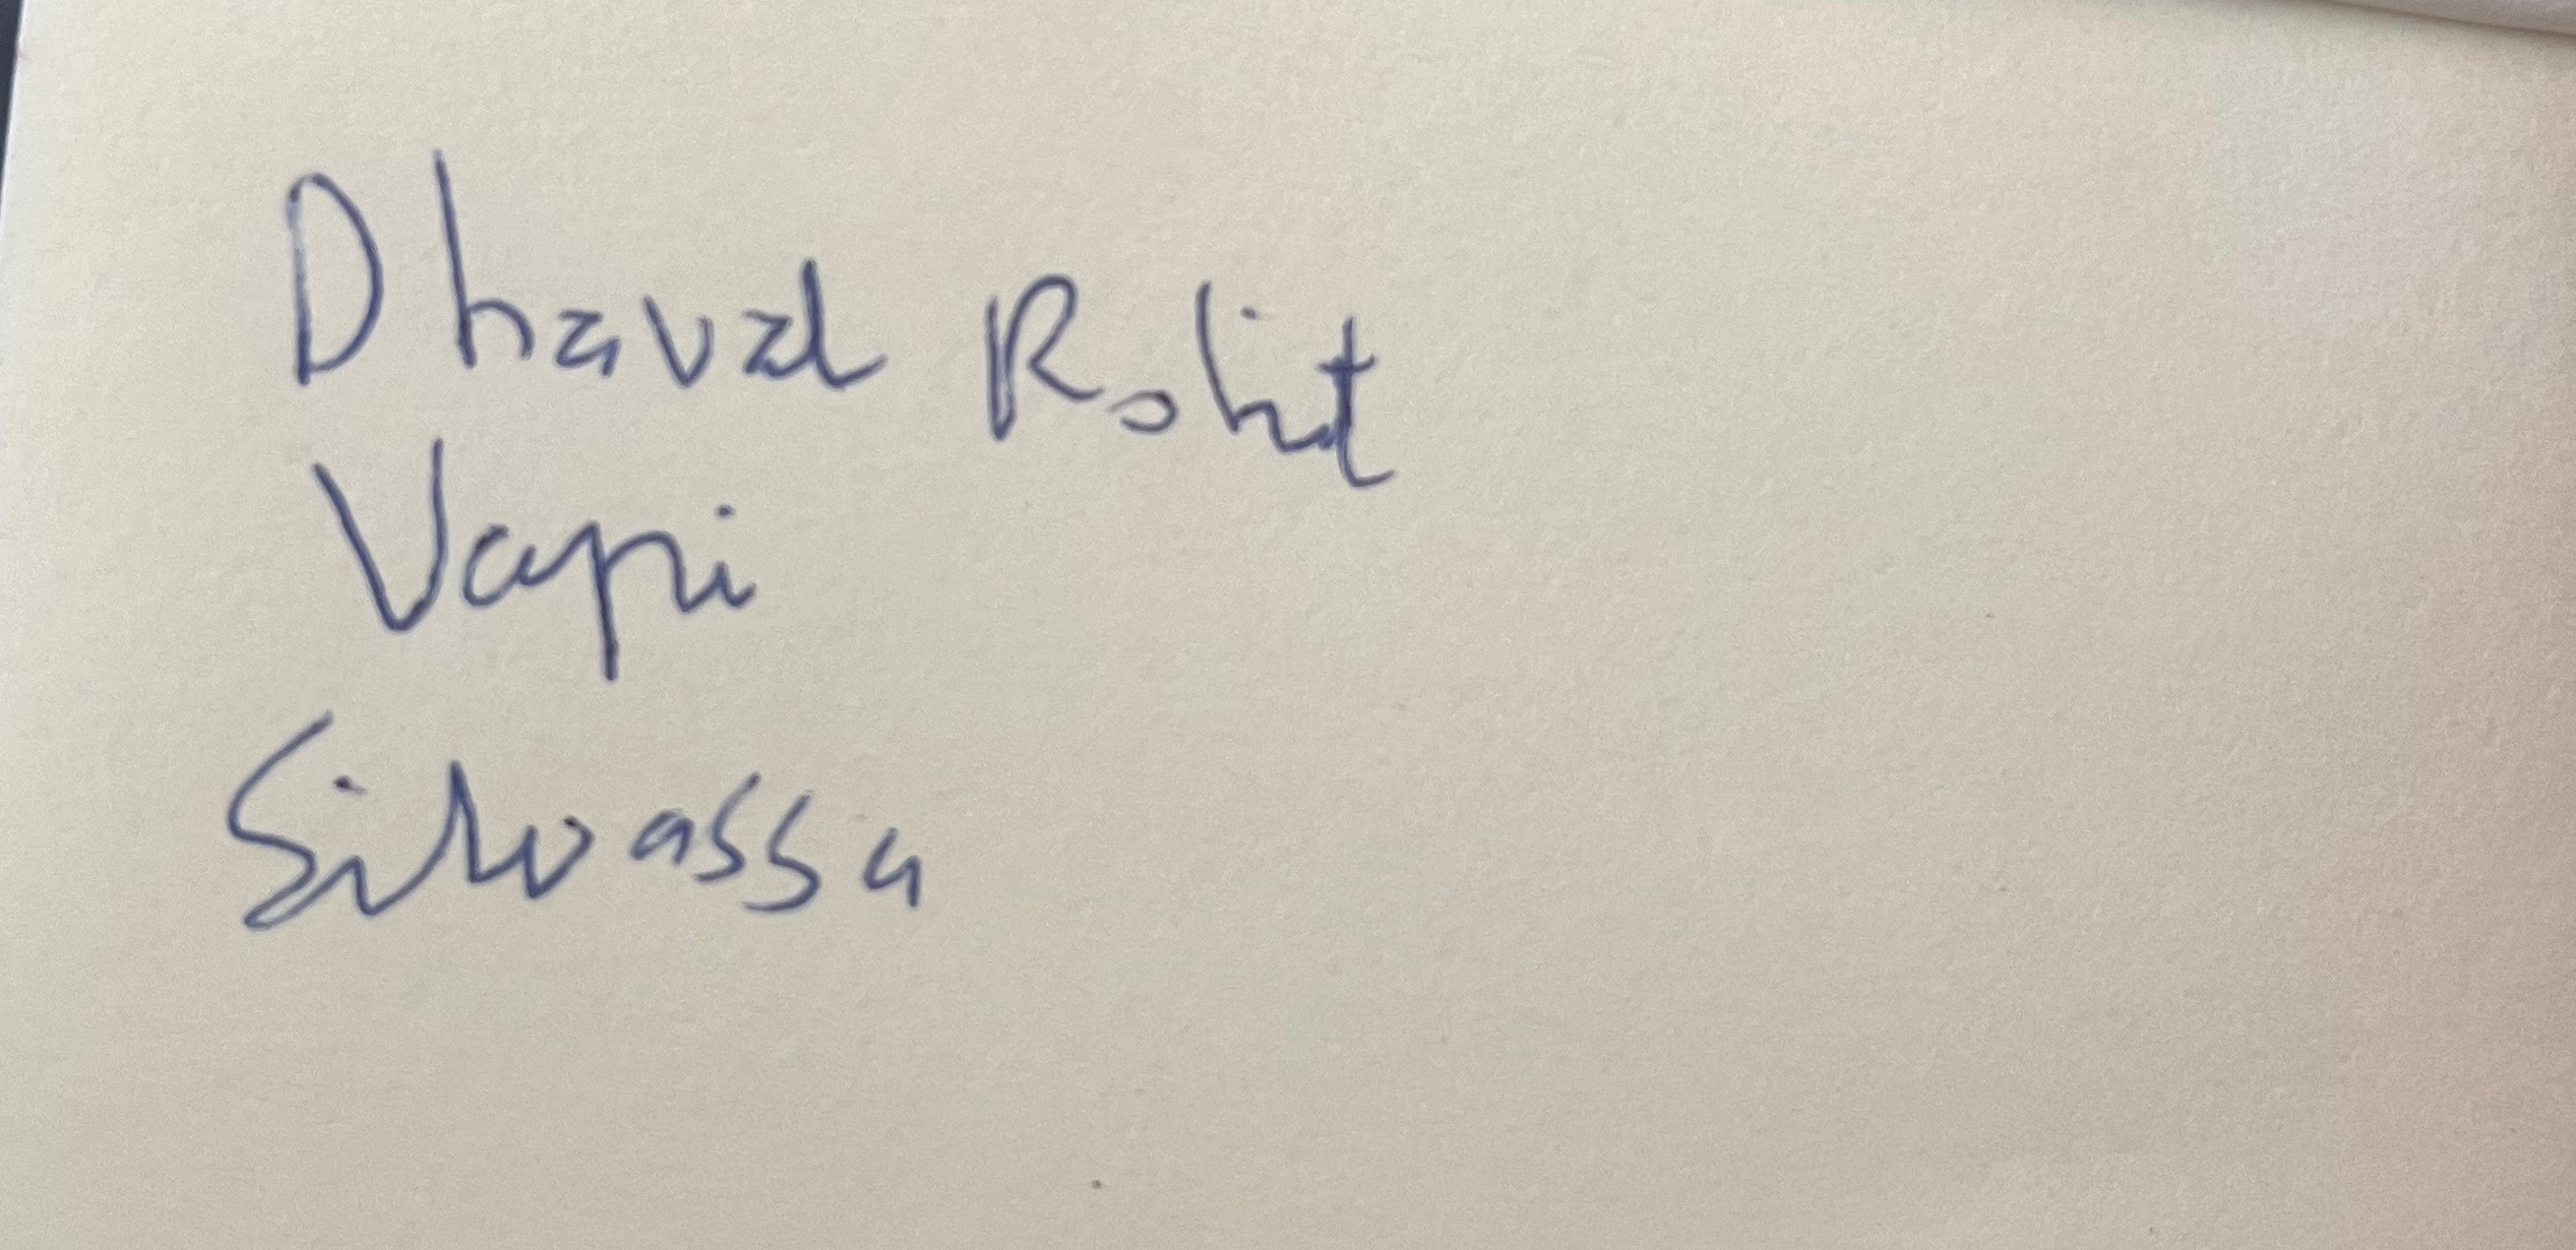 Dhaval Rohit
Vapi
Silvassa